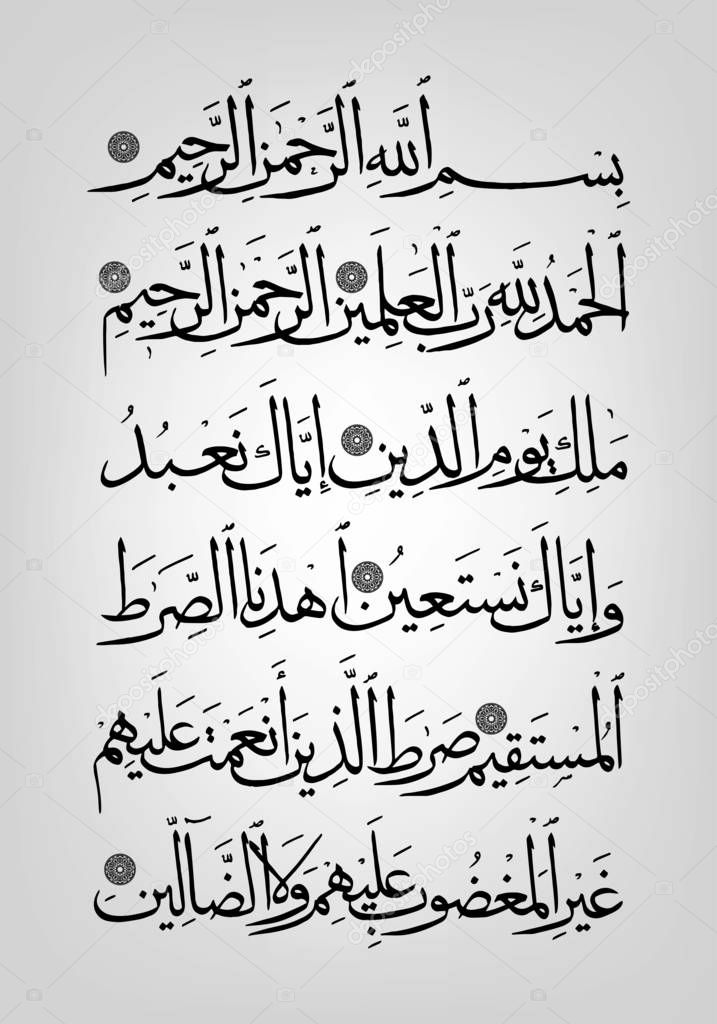 بِسْمِ ٱللَّهِ ٱلرَّحْمَٰنِ ٱلرَّحِيمِ
ٱلْحَمْدُ لِلَّهِ رَبِّ ٱلْعَٰلَمِينَ ٱلرَّحْمَٰنِ ٱلرَّحِيمِ
مَٰلِكِ يَوْمِ ٱلدِّينِ إِيَّاكَ نَعْبُدُ
وَإِيَّاكَ نَسْتَعِينُ ٱهْدِنَا ٱلصِّرَٰطَ
ٱلْمُسْتَقِيمَ صِرَٰطَ ٱلَّذِينَ أَنْعَمْتَ عَلَيْهِمْ
غَيْرِ ٱلْمَغْضُوبِ عَلَيْهِمْ وَلَا ٱلضَّآلِّينَ
depositphotos